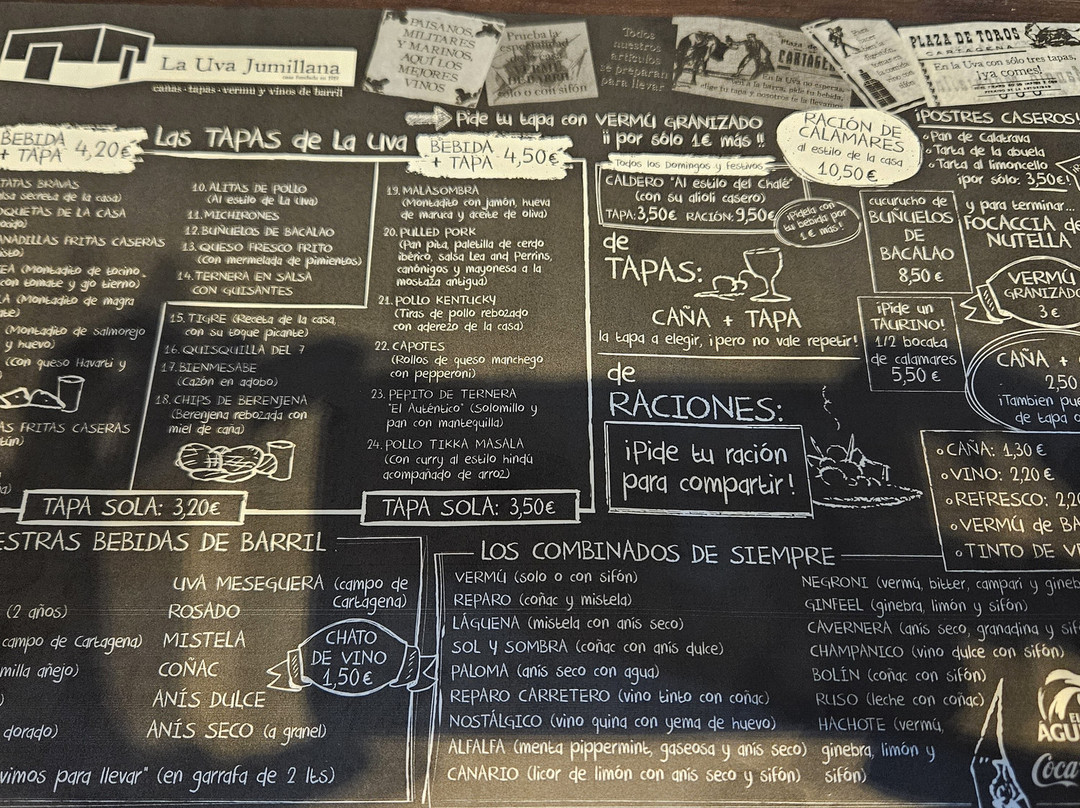 La Uva Jumillana
cañas · tapas · vermú y vinos de barril
PAISANOS,
MILITARES
Y MARINOS,
AQUÍ LOS
MEJORES
VINOS
Prueba la
especialidad
sólo o con sifón
Todos
nuestros
artículos
se preparan
para llevar
Plaza de
CARTAGENA
PLAZA DE TOROS
CARTAGENA
En la Uva con sólo tres tapas,
¡ya comes!
BEBIDA
+ TAPA 4,20€
Las TAPAS de La Uva
BEBIDA
+ TAPA 4,50€
Pide tu tapa con VERMÚ GRANIZADO
¡¡ por sólo 1€ más !!
RACIÓN DE
CALAMARES
al estilo de la casa
10,50€
¡POSTRES CASEROS!
Pan de Calatrava
Tarta de la abuela
Tarta al limoncello
¡por sólo: 3,50€!
TATAS BRAVAS
salsa secreta de la casa)
OQUETAS DE LA CASA
ANADILLAS FRITAS CASERAS
EA (Montadito de tocino,
con tomate y ajo tierno)
LA (Montadito de magra
(Montadito de salmorejo
y huevo)
(Con queso Havarti y
AS FRITAS CASERAS
10. ALITAS DE POLLO
(Al estilo de La Uva)
11. MICHIRONES
12. BUÑUELOS DE BACALAO
13. QUESO FRESCO FRITO
(Con mermelada de pimientos)
14. TERNERA EN SALSA
CON GUISANTES
15. TIGRE (Receta de la casa,
con su toque picante)
16. QUISQUILLA DEL 7
17. BIENMESABE
(Cazón en adobo)
18. CHIPS DE BERENJENA
(Berenjena rebozada con
miel de caña)
19. MALASOMBRA
(Montadito con jamón, hueva
de maruca y aceite de oliva)
20. PULLED PORK
(Pan pita, paletilla de cerdo
ibérico, salsa Lea and Perrins,
canónigos y mayonesa a la
mostaza antigua)
21. POLLO KENTUCKY
(Tiras de pollo rebozado
con aderezo de la casa)
22. CAPOTES
(Rollos de queso manchego
con pepperoni)
23. PEPITO DE TERNERA
"El Auténtico" (Solomillo y
pan con mantequilla)
24. POLLO TIKKA MASALA
(Con curry al estilo hindú
acompañado de arroz)
TAPA SOLA: 3,20€
TAPA SOLA: 3,50€
Todos los Domingos y Festivos
CALDERO "Al estilo del Chalé"
(con su alioli casero)
TAPA: 3,50€ RACIÓN: 9,50€
¡Pídela con
tu bebida por
1€ más!
de
TAPAS:
CAÑA + TAPA
la tapa a elegir, ¡pero no vale repetir!
de
RACIONES:
¡Pide tu ración
para compartir!
cucurucho de
BUÑUELOS
DE
BACALAO
8,50 €
¡Pide un
TAURINO!
1/2 bocata
de calamares
5,50 €
y para terminar...
FOCACCIA de
NUTELLA
VERMÚ
GRANIZADO
3 €
CAÑA +
2,50
¡También pue
de tapa
CAÑA: 1,30 €
VINO: 2,20 €
REFRESCO: 2,20
VERMÚ de BA
TINTO DE VE
ESTRAS BEBIDAS DE BARRIL
(2 años)
campo de Cartagena)
milla añejo)
dorado)
UVA MESEGUERA (campo de
Cartagena)
ROSADO
MISTELA
COÑAC
ANÍS DULCE
ANÍS SECO (a granel)
CHATO
DE VINO
1,50€
vimos para llevar" (en garrafa de 2 lts)
LOS COMBINADOS DE SIEMPRE
VERMÚ (solo o con sifón)
REPARO (coñac y mistela)
LÁGUENA (mistela con anís seco)
SOL Y SOMBRA (coñac con anís dulce)
PALOMA (anís seco con agua)
REPARO CARRETERO (vino tinto con coñac)
NOSTÁLGICO (vino quina con yema de huevo)
ALFALFA (menta pippermint, gaseosa y anís seco)
CANARIO (licor de limón con anís seco y sifón)
NEGRONI (vermú, bitter, campari y gineb
GINFEEL (ginebra, limón y sifón)
CAVERNERA (anís seco, granadina y sif
CHAMPANICO (vino dulce con sifón)
BOLÍN (coñac con sifón)
RUSO (leche con coñac)
HACHOTE (vermú,
ginebra, limón y
sifón)
AGU
Coca